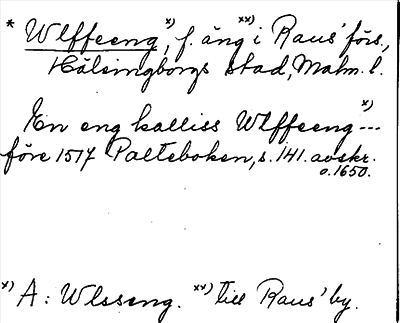 * Wlffeeng x), f. äng xx) i Raus' förs.,
Hälsingborgs stad, Malm. l.
En eng kalliss Wlffeeng x) ---
före 1517 Palteboken, s. 141. avskr.
o. 1650.
x) A: Wlsseng. xx) till Raus' by.